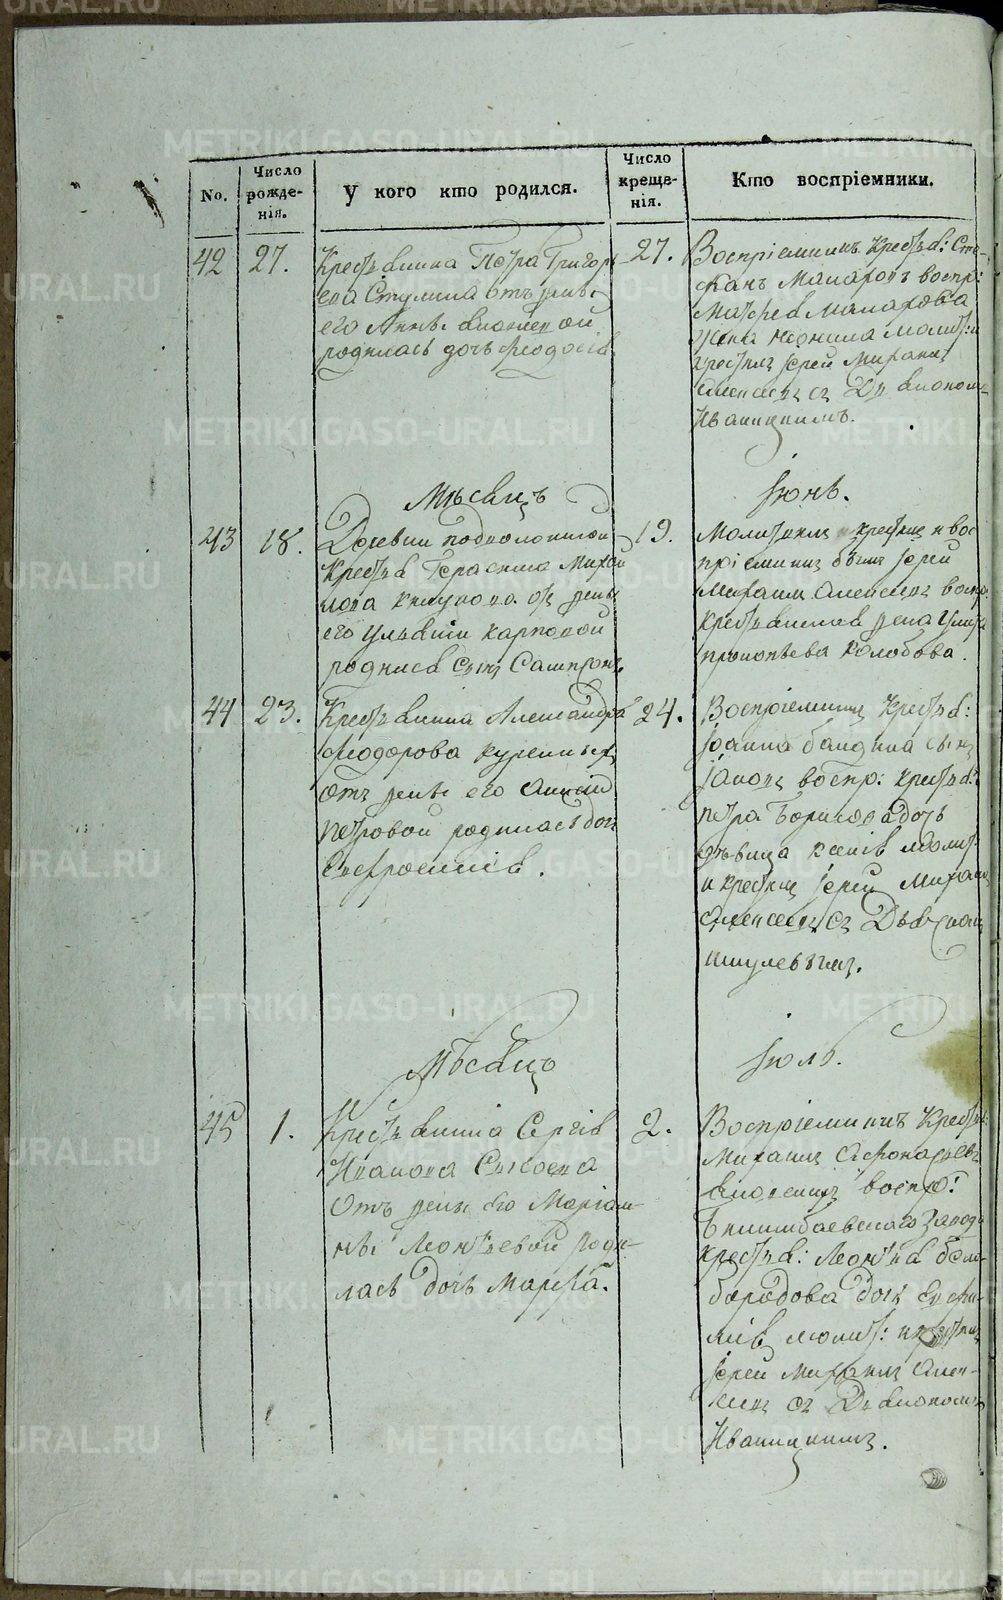 No.
Число рожде-
нія.
У кого кто родился.
Число креще-
нія.
Кто воспріемники.
42
27.
Крестьянина Петра Григорь
ева Стулина отъ жены
его Анны
родилась дочь Феодосія
27.
Воспріемникъ Крестья: Сте-
фанъ Макаровъ воспр:
Матфея Макарова
жена Неонила Молит:
крестилъ Іерей Михаилъ
Алексеевъ съ Діакономъ
Иваницкимъ.
Мѣсяцъ
Іюнь.
43
18.
Деревни
Крестья Герасима Михай
лова отъ жены
его Ульянии Карповой
родился сынъ Сампсонъ
19.
Молитвилъ крестилъ и вос
пріемникъ былъ Іерей
Михаилъ Алексеевъ воспр:
крестьянская жена
Прокопьева Колобова.
44
23.
Крестьянина Александра
Феодорова
Отъ жены его Анисіи
Петровой родилась доч
Евфросинія.
24.
Воспріемникъ Крестья:
Іоанна Балдина сынъ
Іаковъ воспр: крестья:
Петра Борисова дочь
дѣвица Ксенія Молит:
и крестилъ Іерей Михаилъ
Алексеевъ съ
Шиулевымъ.
Мѣсяцъ
Іюль.
45
1.
Крестьянина Сергія
Иванова Сысоева
Отъ жены его Маріам-
ны Леонтьевой роди-
лась дочь Марѳа.
2.
Воспріемникъ Крестья:
Михаилъ
воспр:
Билимбаевскаго завода
крестья: Леонтья Бело-
бородова дочь Евфи-
мія молит: и крестилъ
Іерей Михаилъ Алек-
сеевъ съ Діакономъ
Иваницкимъ.
METRIKI.GASO-URAL.RU